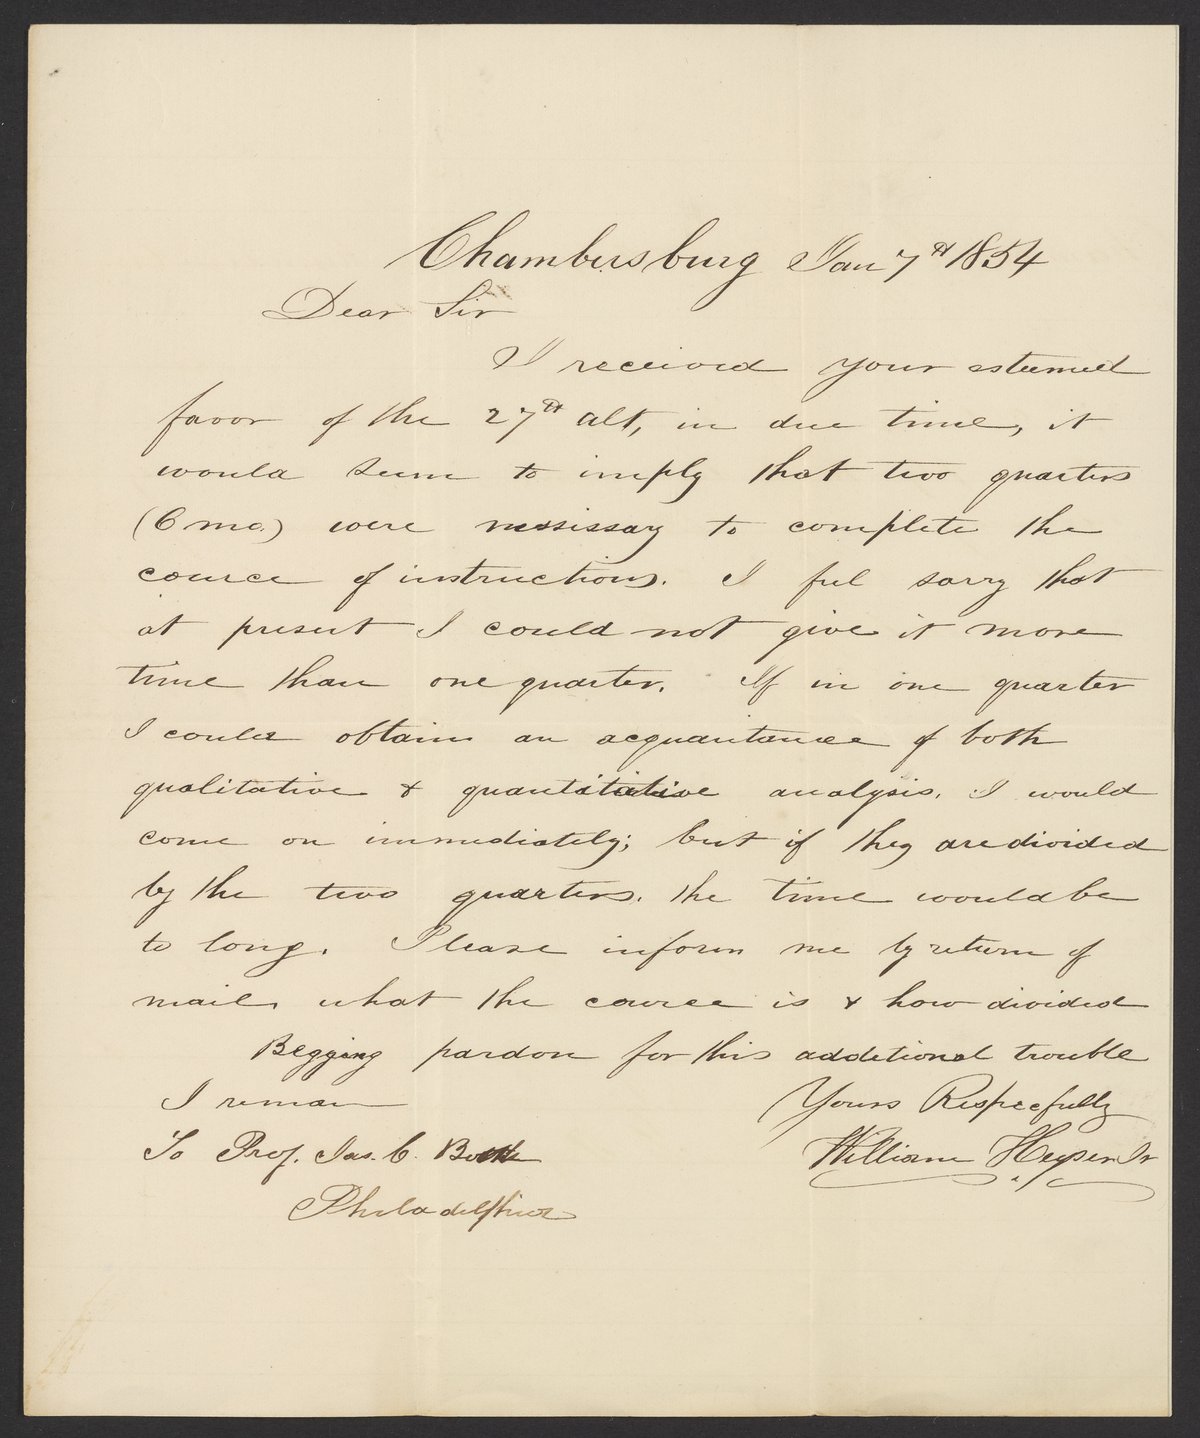 Chambersburg Jan 7th 1854
Dear Sir
I received your esteemed
favor of the 27th ult, in due time, it
would seem to imply that two quarters
(6 mo.) were nessissary to complete the
cource of instructions. I feel sorry that
at present I could not give it more
time than one quarter. If in one quarter
I could obtain an acquaintance of both
qualitative & quantitative analysis, I would
come on immediately; but if they are divided
by the two quarters, the time would be
to long. Please inform me by return of
mail, what the cource is & how divided
Begging pardon for this additional trouble
I remain
Yours Respecfully
To Prof. Jas. C. Booth
William Heyser Jr
Philadelphia